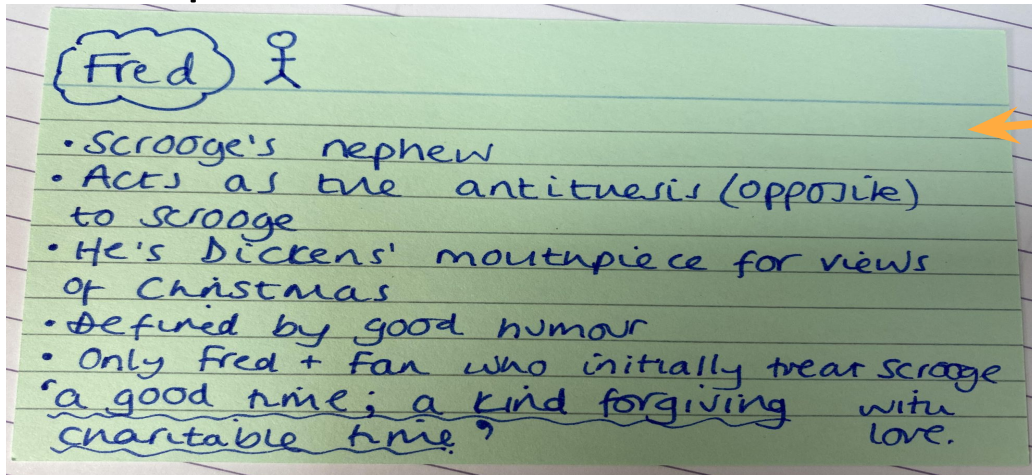 Fred
• Scrooge's nephew
• Acts as the antithesis (opposite)
to scrooge
• He's Dickens' mouthpiece for views
of Christmas
• Defined by good humour
• Only Fred + Fan who initially treat scrooge
'a good time; a kind forgiving with
charitable time' love.